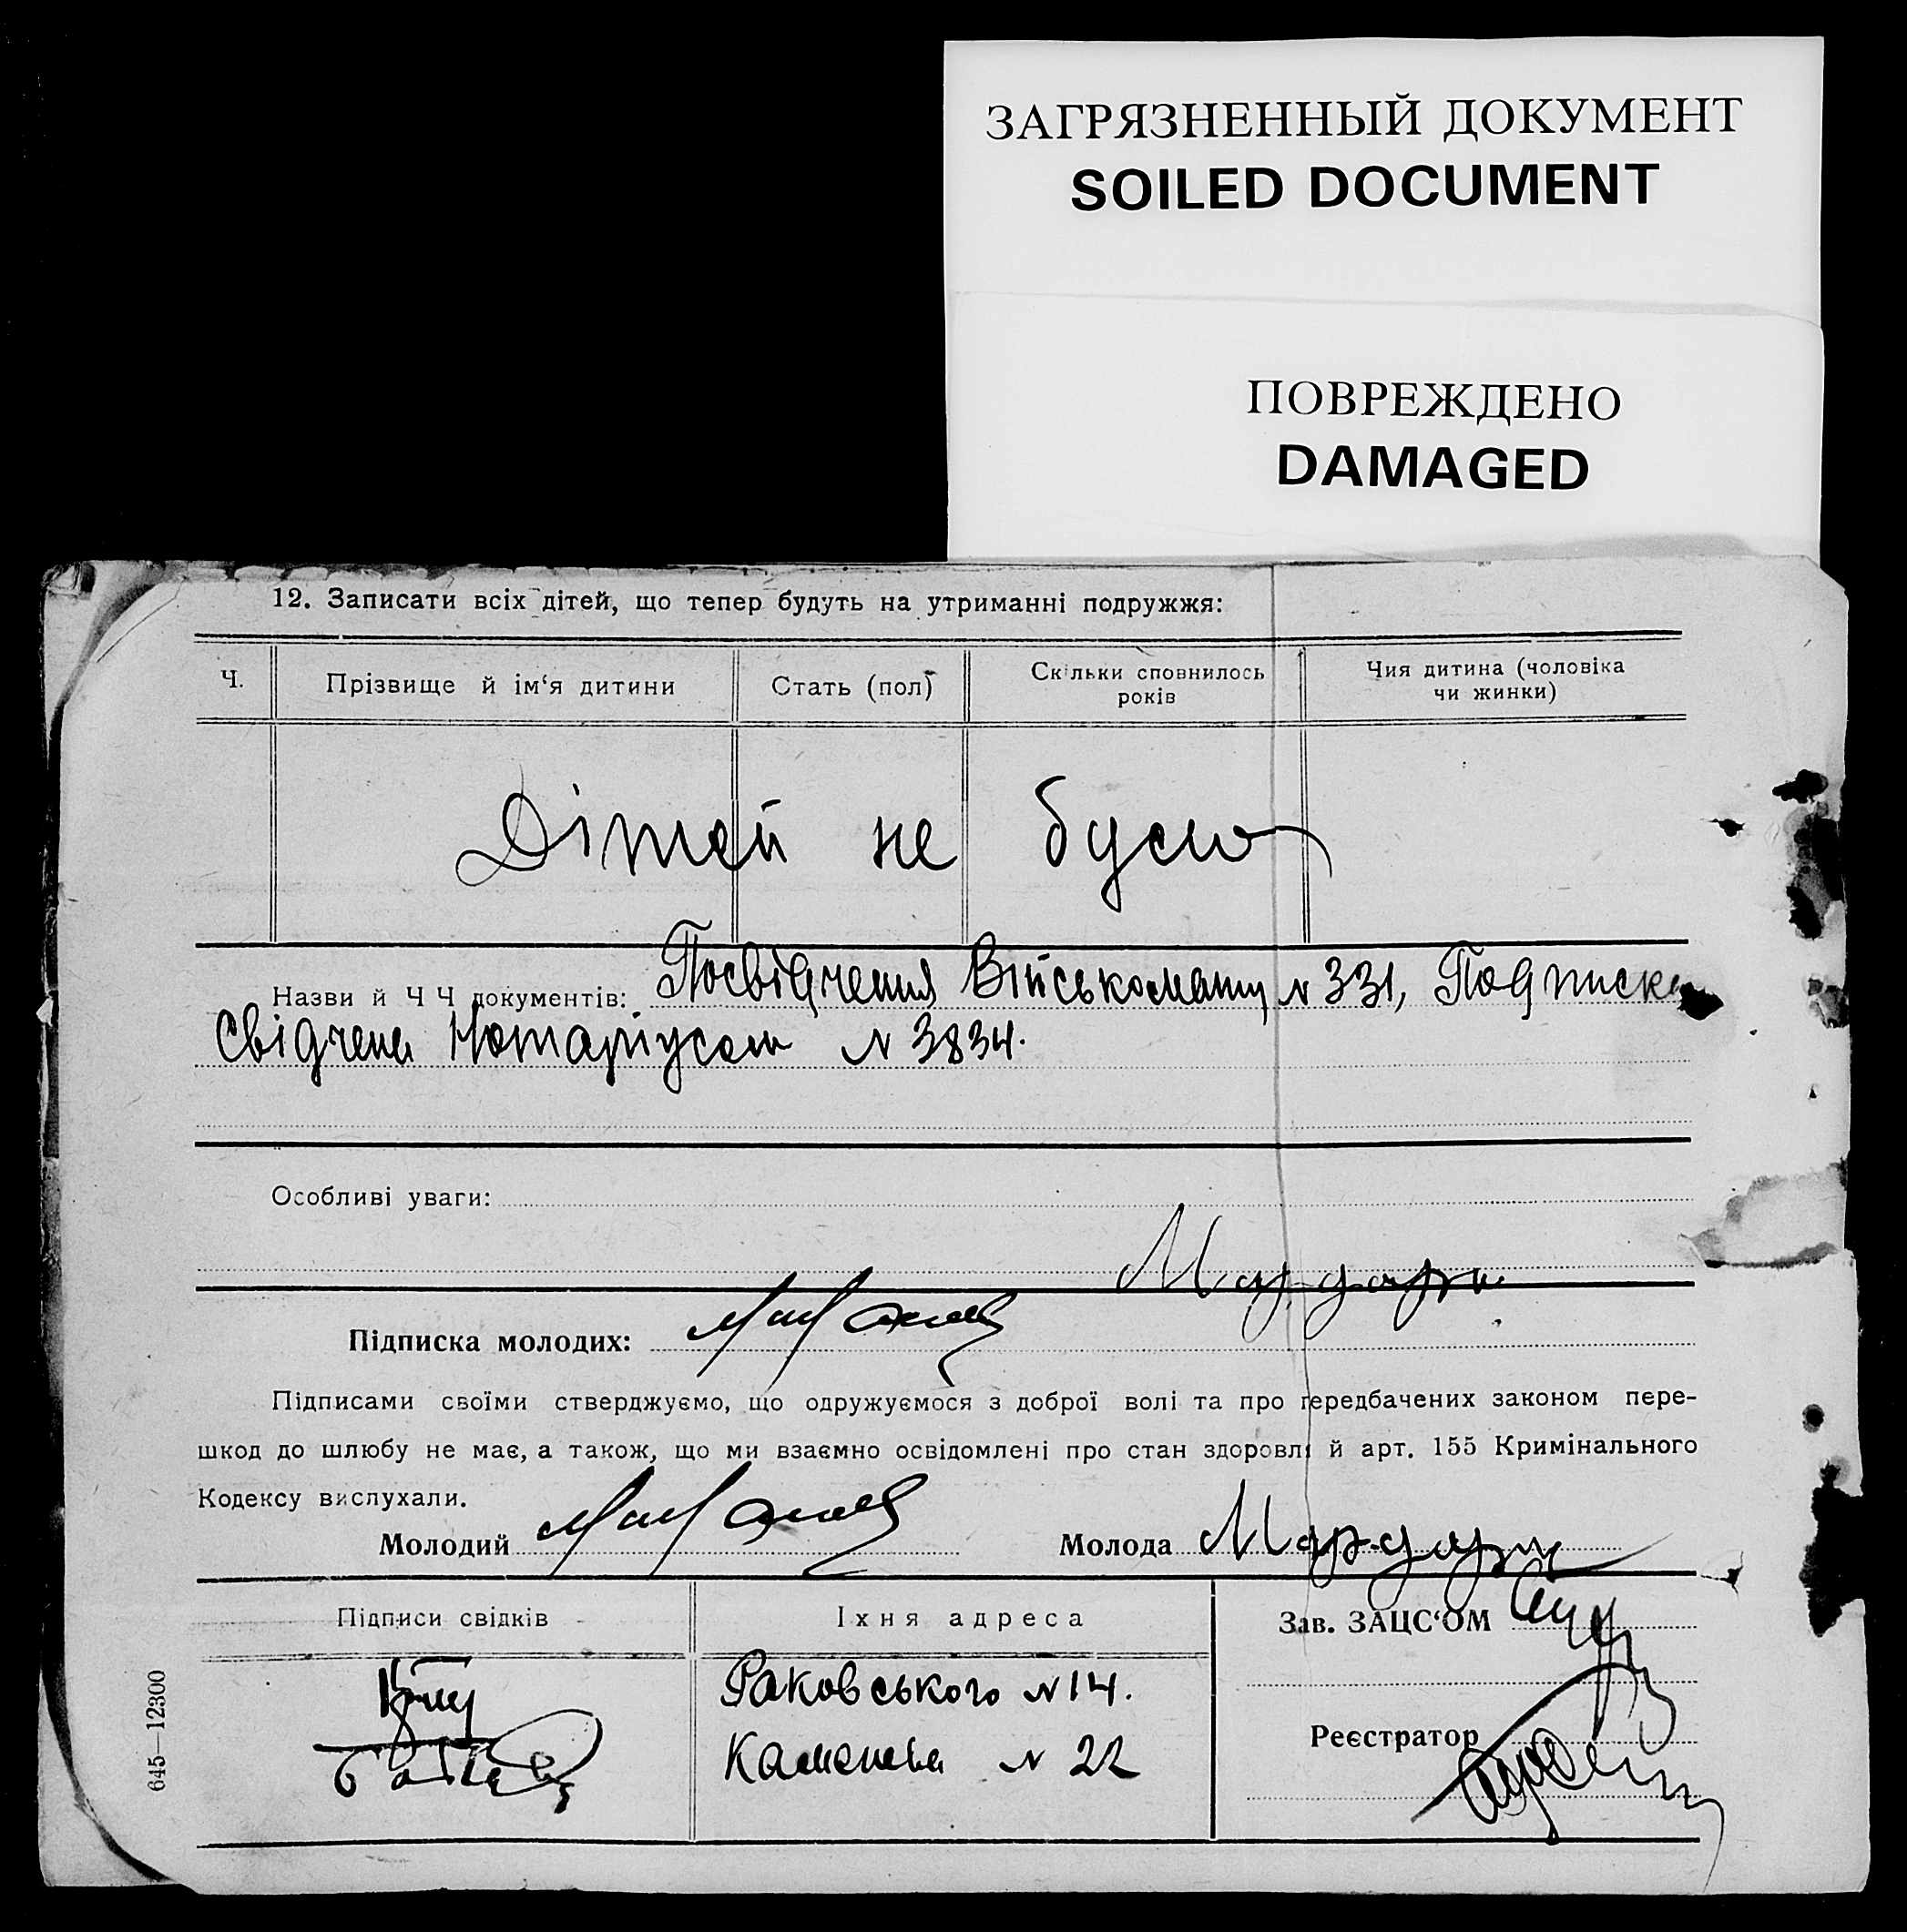 ЗАГРЯЗНЕННЫЙ ДОКУМЕНТ
SOILED DOCUMENT
ПОВРЕЖДЕНО
DAMAGED
12. Записати всіх дітей, що тепер будуть на утриманні подружжя:
Ч. Прізвище й ім‘я дитини Стать (пол) Скільки сповнилось років Чия дитина (чоловіка чи жинки)
Дітей не було
Назви й Ч Ч документів: Посвідчення Військомату № 331, Подписка
Свідчена Нотаріусом № 3834.
Особливі уваги:
Підписка молодих: Мардарь
Підписами своїми стверджуємо, що одружуємося з доброї волі та про передбачених законом пере-
шкод до шлюбу не має, а також, що ми взаємно освідомлені про стан здоровля й арт. 155 Кримінального
Кодексу вислухали.
Молодий Молода Мардарь
Підписи свідків Їхня адреса Зав. ЗАЦС‘ОМ
Раковського № 14.
Реєстратор
Каменева № 22
645—12300